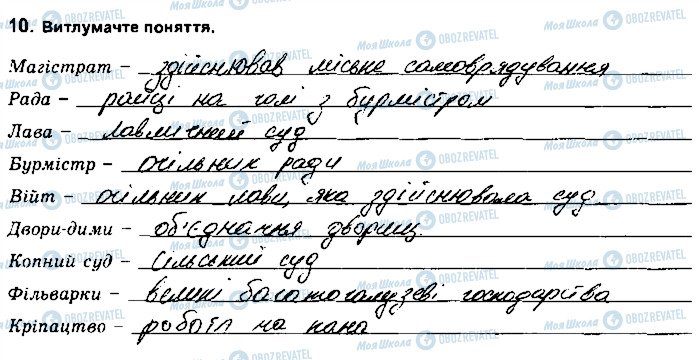 10. Витлумачте поняття.
Магістрат – здійснював міське самоврядування
Рада – райці на чолі з бурмістром
Лава – лавничний суд
Бурмістр – очільник ради
Війт – очільник лави, яка здійснювала суд
Двори-дими – об'єднання дворищ.
Копний суд – сільський суд
Фільварки – великі багатогалузеві господарства
Кріпацтво – робота на пана